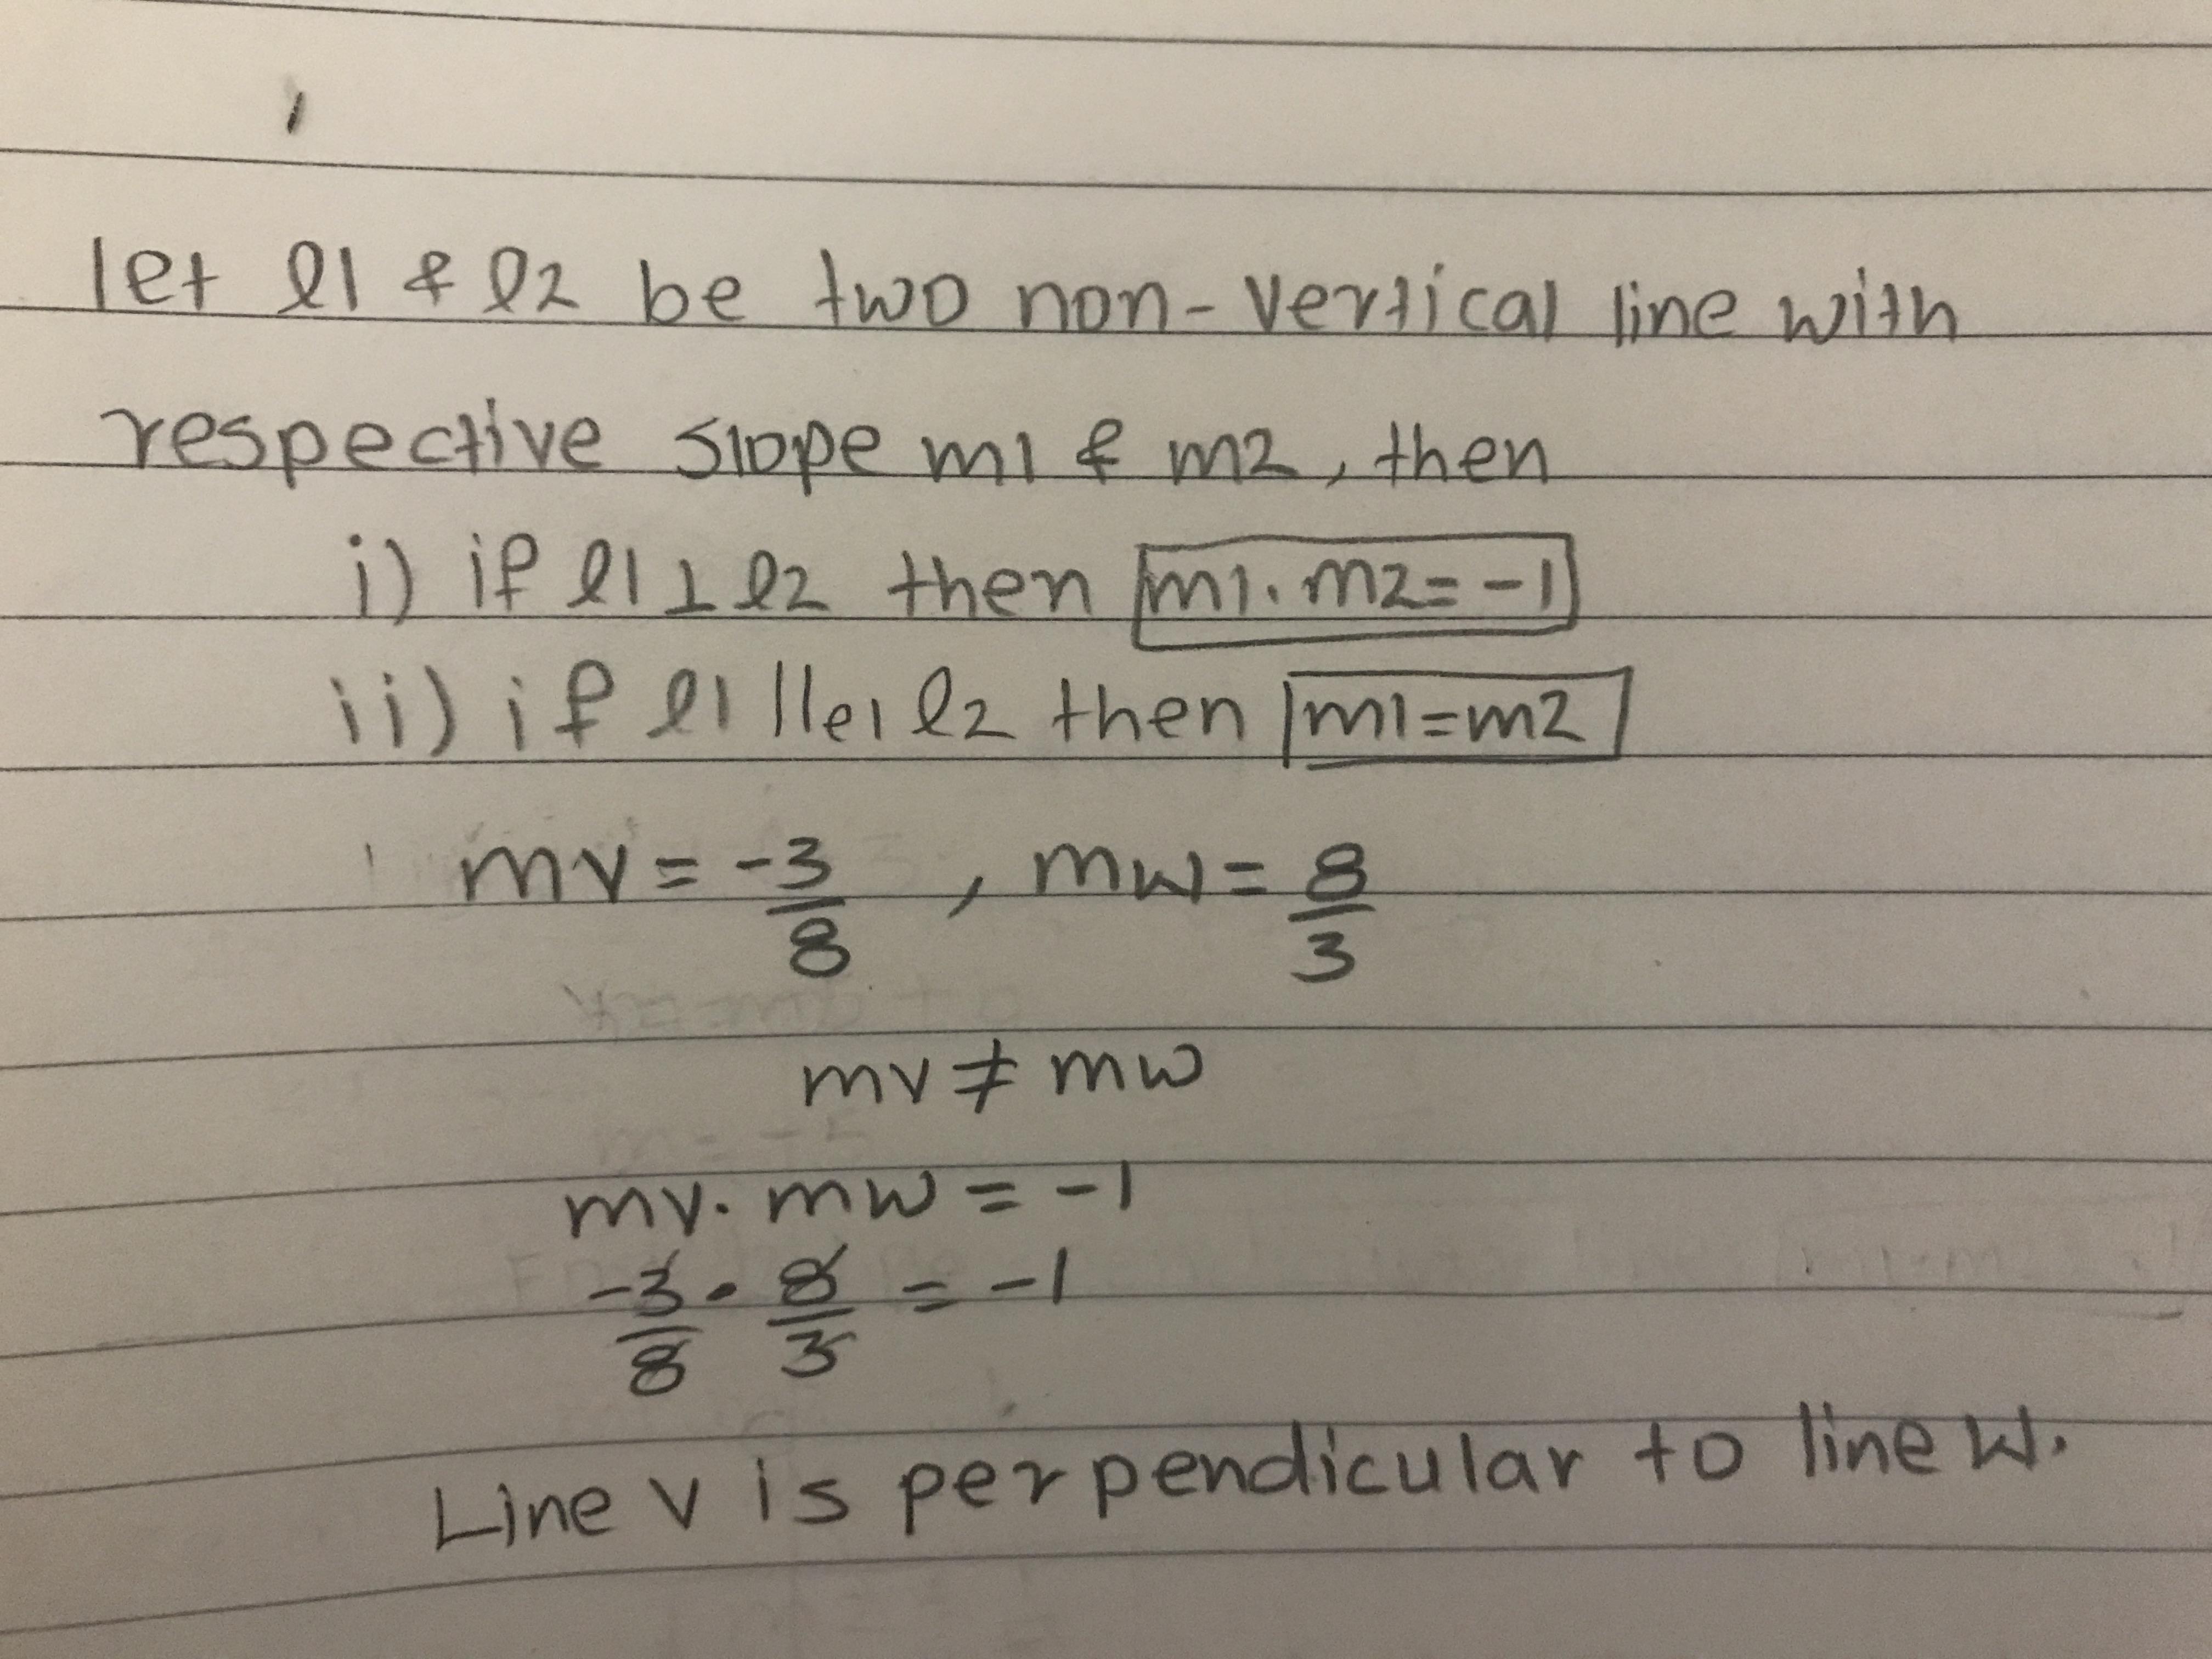 let l1 & l2 be two non-vertical line with
respective slope m1 & m2, then
i) if l1 ⊥ l2 then m1. m2= -1
ii) if l1 llel l2 then m1=m2
mv = -3/8 , mw = 8/3
mv ≠ mw
mv. mw = -1
-3/8 • 8/3 = -1
Line v is perpendicular to line w.